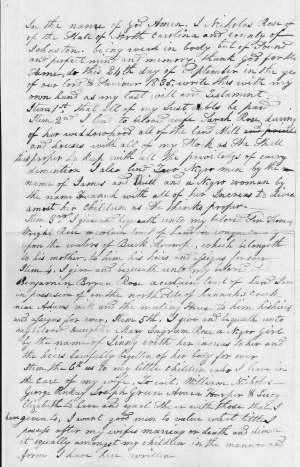 In the name of god Amen. I Nicholas Rose
of the State of North Carolina and county of
Johnston. being weak in body but of Sound
and perfect mind and memory, thank god for the
Same, do this 24th day of September in the ye
of our lord & Saviour 1835, write this with my
own hand as my last will and Testament.
Item 1st Shee All of my Just debts be paid
Item 2nd I lend to belovd wife Sarah Rose, during
of her widdowhood all of the land Mill
and dreses with all of my Stock as She Shall
this proper to Keep with all the priviledge of every
demention I also lend Negro men by the
name of James and Will and a Negro woman by
the name with all of her Increas to devis
amost her Children as She thinks proper
Item 3rd I give and bequeath unto my belovd Son
Wright Rose a certain tract of Land
upon the waters of Buck Swamp, which belongeth
to his mother, to him his heirs and asigns for ever
Item 4. I give and bequeath unto my belovd
Benjamin Bryan Rose a certain tract of Land
in possesion of on the north side of Hannahs Creek
near Adams and the meeting House to him his heirs
and asigns for ever. Item 5th. I give and bequeath unto
my belovd daughter Mary Ingram Rose a Negro Girl
by the name of Linny with her increas to her and
the heirs lawfully begotten of her body for ever
Item the 6th as to my little children who I leave in
the care of my wife, To wit, William Nicholas
George Pinkney Joseph Green Amea Harper & Lucy
Elizabeth to live and Share with those that I
have given to, I want good men to value what little I
posses after my wifes marriag or death and divid
it equally amongst my children in the manner and
from I have here written